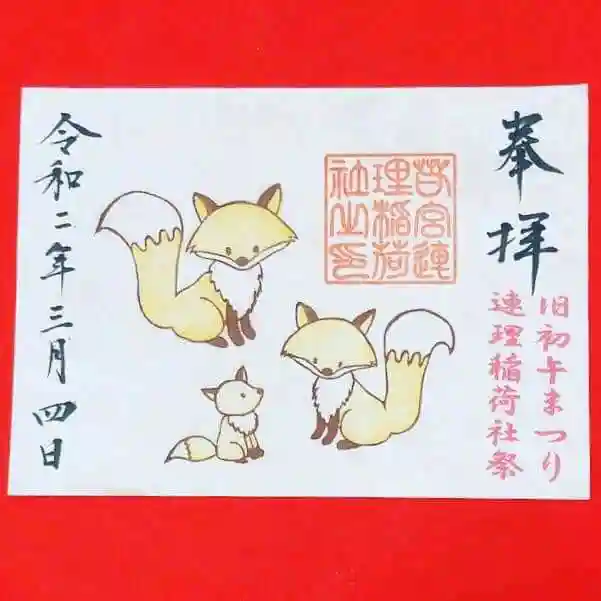 奉拝
旧初午まつり
連理稲荷社祭
苔宮連
理稲荷
社之印
令和二年三月四日